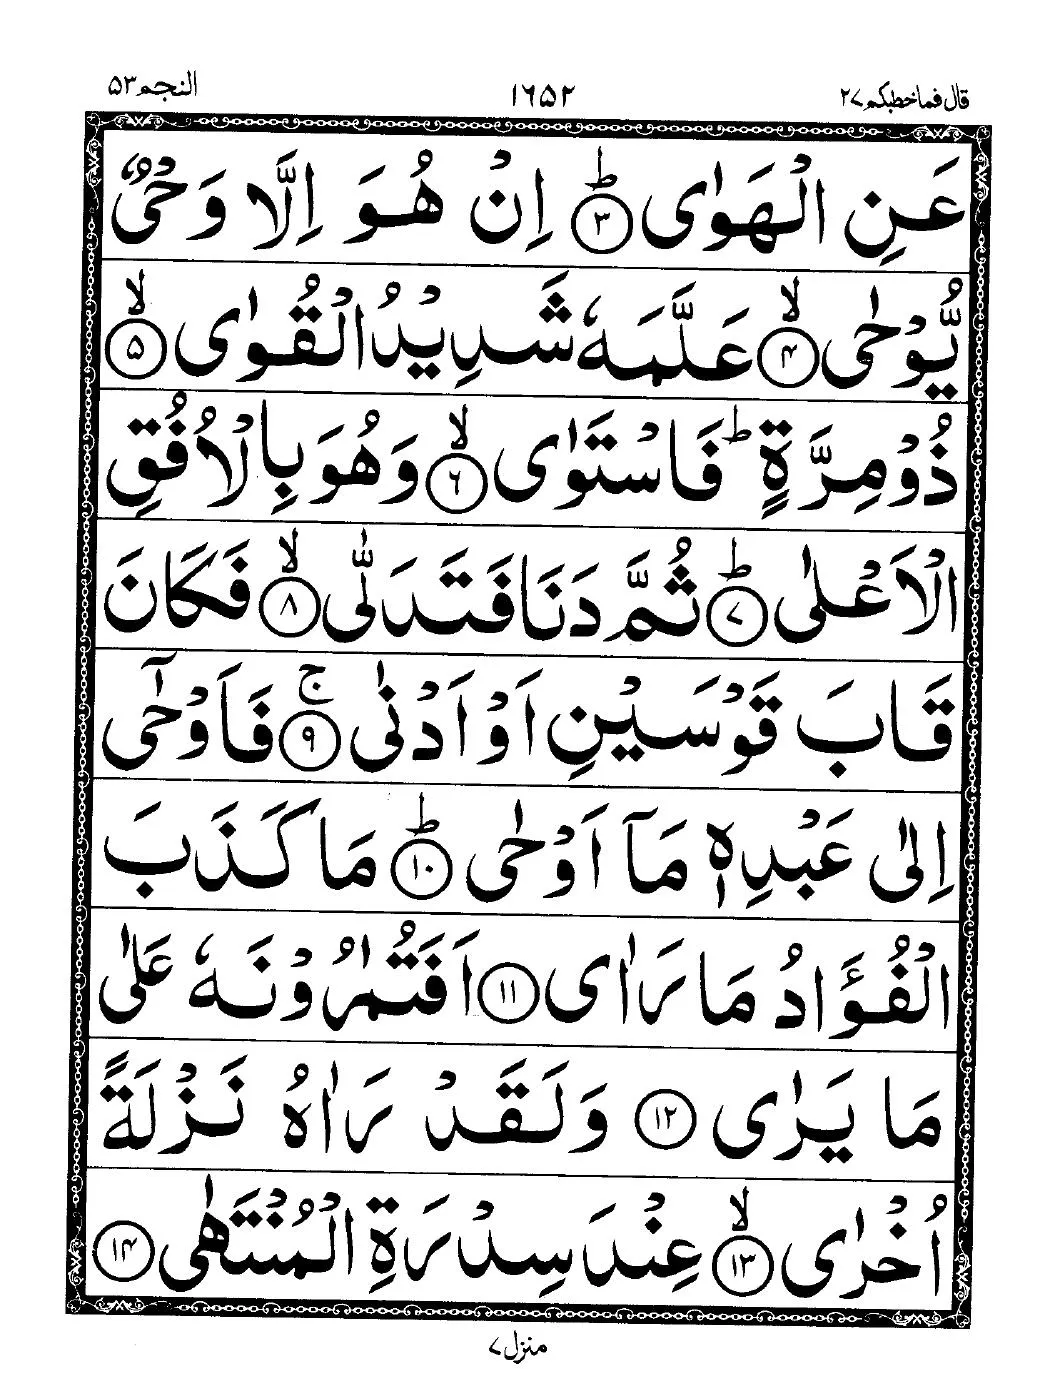 قال فما خطبکم ۲۷ ۱۶۵۲ النجم ۵۳
عَنِ الْهَوٰی ؕ﴿۳﴾ اِنْ هُوَ اِلَّا وَحْیٌ
یُّوْحٰی ۙ﴿۴﴾ عَلَّمَهٗ شَدِیْدُ الْقُوٰی ۙ﴿۵﴾
ذُوْ مِرَّةٍ ؕ فَاسْتَوٰی ۙ﴿۶﴾ وَهُوَ بِالْاُفُقِ
الْاَعْلٰی ؕ﴿۷﴾ ثُمَّ دَنَا فَتَدَلّٰی ۙ﴿۸﴾ فَكَانَ
قَابَ قَوْسَیْنِ اَوْ اَدْنٰی ۚ﴿۹﴾ فَاَوْحٰۤی
اِلٰی عَبْدِهٖ مَاۤ اَوْحٰی ؕ﴿۱۰﴾ مَا كَذَبَ
الْفُؤَادُ مَا رَاٰی ﴿۱۱﴾ اَفَتُمٰرُوْنَهٗ عَلٰی
مَا یَرٰی ﴿۱۲﴾ وَلَقَدْ رَاٰهُ نَزْلَةً
اُخْرٰی ۙ﴿۱۳﴾ عِنْدَ سِدْرَةِ الْمُنْتَهٰی ﴿۱۴﴾
منزل ۷